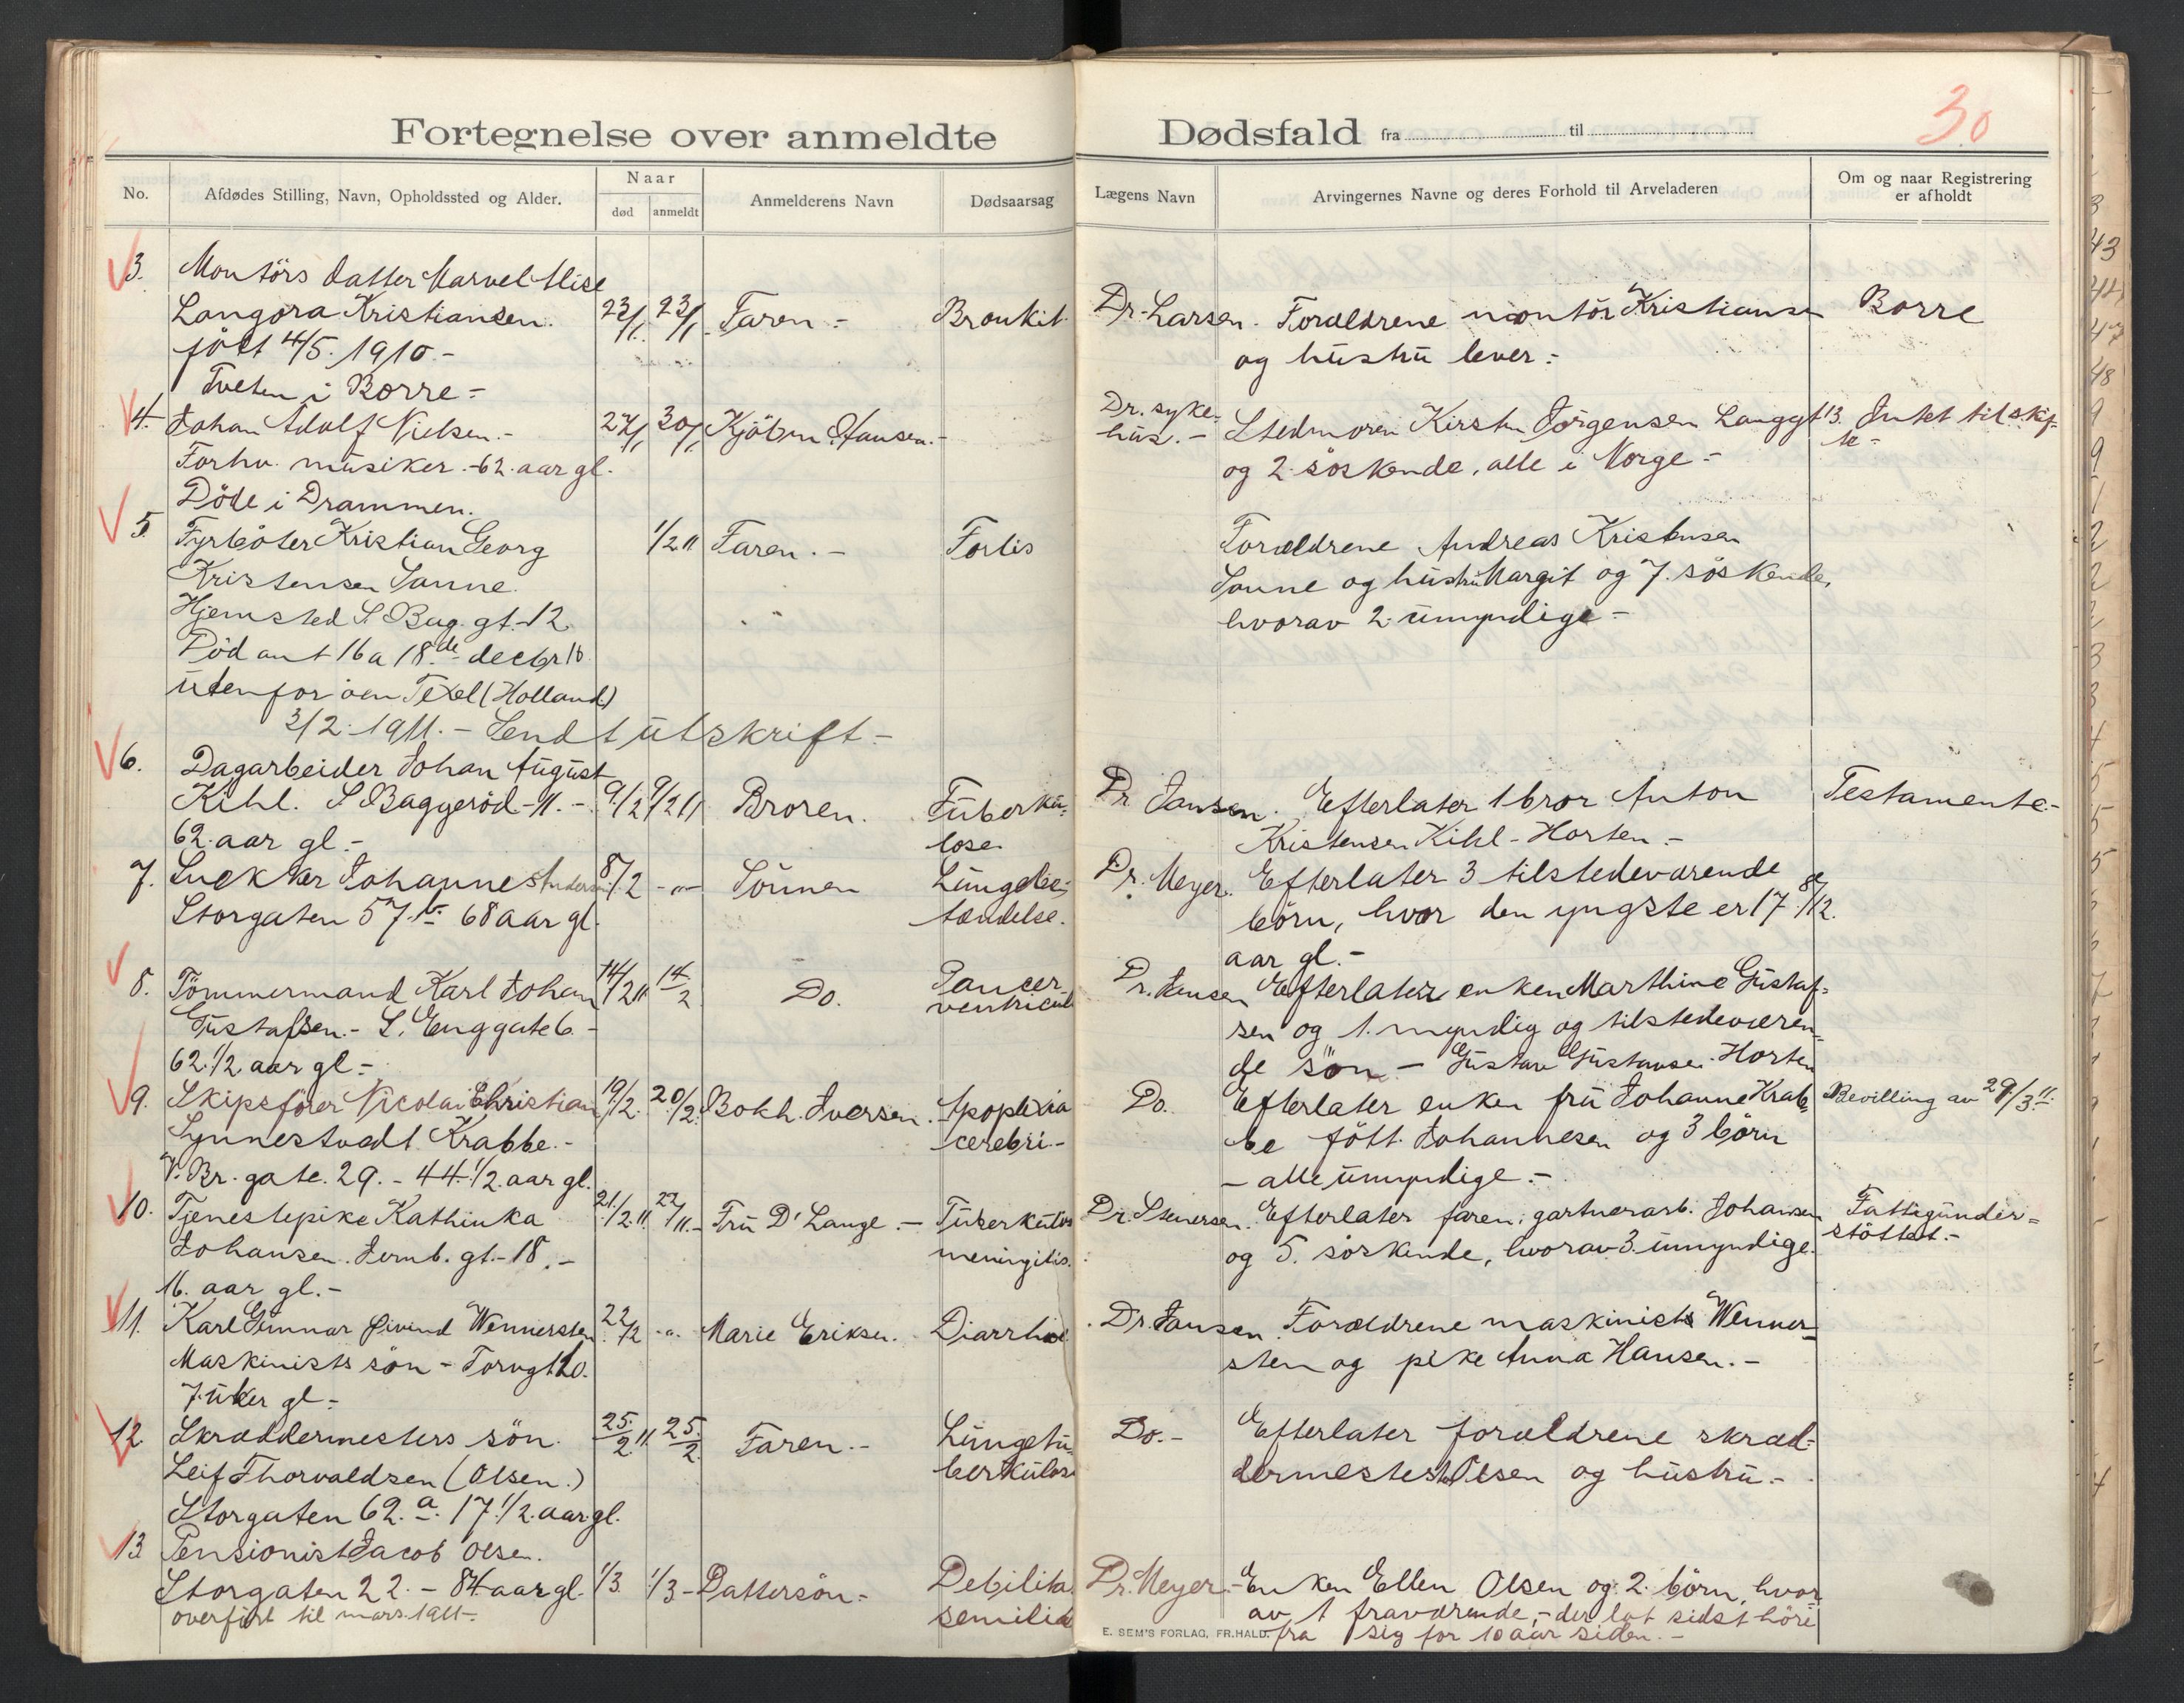 30
Fortegnelse over anmeldte Dødsfald fra til
No.
Afdødes Stilling, Navn, Opholdssted og Alder.
Naar
død
anmeldt
Anmelderens Navn
Dødsaarsag
Lægens Navn
Arvingernes Navne og deres Forhold til Arveladeren
Om og naar Registrering
er afholdt
3. Montörs datter Marvel Alise
Langora Kristiansen. 23/1. 23/1 Faren.- Bronkit. Dr. Larsen. Forældrene montör Kristiansen Borre
född 4/5. 1910.- og hustru lever.-
Tveten i Borre-
4. Johan Adolf Nielsen.- 27/1 30/1 Kjöbm. Hansen.- Dr. syke- Stedmoren Kirsten Jörgensen Langgt 13. Intet til skif-
Forhv. musiker.-62. aar gl. hus.- og 2 söskende, alle i Norge.- te-
Döde i Drammen.
5 Fyrböter Kristian Georg 1/2 11 Faren.- Forlis Forældrene Andreas Kristensen
Kristensen Sanne. Sanne og hustru Margit og 7. söskende,
Hjemsted S. Bag. gt. 12. hvorav 2 umyndige-
Död ant 16 a 18de decbr 10
utenfor öen Texel (Holland)
3/2. 1911.- Sendt utskrift-
6. Dagarbeider Johan August
Kihl. S Baggeröd-11.- 9/2 9/2 11 Broren. Tuberku- Dr Jansen. Efterlater 1 bror Anton Testamente.-
62. aar gl.- lose. Kristensen Kihl-Horten.-
7. Snekker Johannes Anderssen 8/2 -"- Sönnen Lungebe- Dr. Meyer. Efterlater 3 tilstedeværende
Storgaten 57 b. 68 aar gl. tændelse. börn, hvor den yngste er 17 8/12.
aar gl.-
8. Tömmermand Karl Johan 14/2 11 14/2 Do. Cancer Dr. Jansen Efterlater enken Marthine Gustaf-
Gustafsen.- S. Enggate 6- ventricul sen og 1. myndig og tilstedeværen-
62. 1/2 aar gl.- de sön - Gustav Gustavsen Horten
9. Skipsförer Nicolai Christian 19/2. 20/2. Bokh. Iversen. Apoplexia Do. Efterlater enken fru Johanne Krab- Bevilling av 29/3 11.
Synnestvedt Krabbe.- cerebri.- be född Johannesen og 3 börn
V. Br. gate. 29.- 44. 1/2. aar gl. - alle umyndige.-
10. Tjenestepike Kathinka 21/2. 11. 22/11.- Fru D' Lange.- Tuberkulös Dr. Stenersen. Efterlater faren, gartnerarb. Johansen Fattigunder-
Johansen. Jernb. gt.-18.- meningitis. og 5. söskende, hvorav 3. umyndige. stöttet.-
16. aar gl.-
11. Karl Gunnar Øivind Wennersten 22/2 -"- Marie Eriksen. Diarrhoe Dr. Jansen. Forældrene maskinist Wenner-
Maskinists sön - Torvgt 20. sten og pike Anna Hansen.-
7. uker gl-
12. Skræddermesters sön. 25/2. 11. 25/2. Faren.- Lungetu- Do.- Efterlater forældrene skræd-
Leif Thorvaldsen (Olsen.) berkulose dermester Olsen og hustru.-
Storgaten 62. a. 17. 1/2. aar gl.
13 Pensionist Jacob Olsen.
Storgaten 22.- 84 aar gl. 1/3. 1/3- Dattersön- Debilitas Dr. Meyer.- Enken Ellen Olsen og 2. börn, hvor
overfört til mars 1911-. semilia av 1 fraværende,- der lot sidst höre
fra sig for 10 aar siden.-
E. SEM'S FORLAG, FR.HALD.